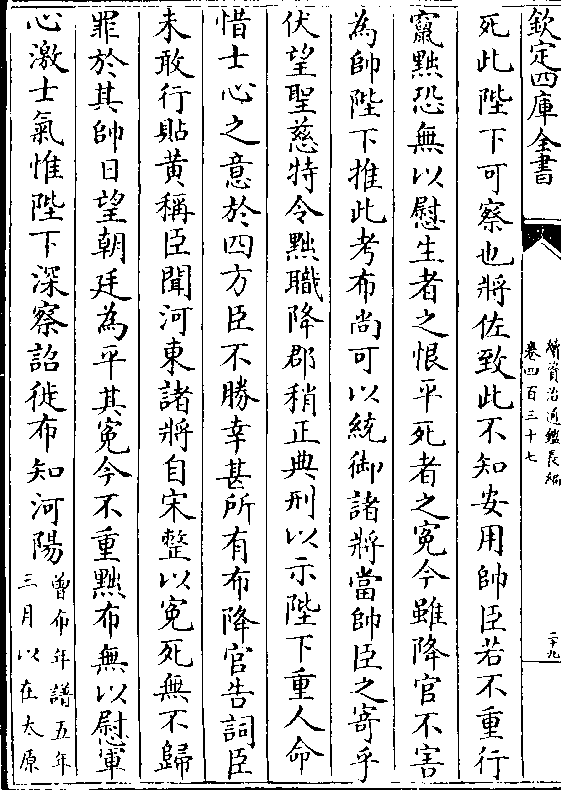 欽定四庫全書
續資治通鑑長編
卷四百三十七
二十九
死此陛下可察也將佐致此不知安用帥臣若不重行
竄黜恐無以慰生者之恨平死者之寃今雖降官不害
為帥陛下推此考布尚可以統御諸將當帥臣之寄乎
伏望聖慈特令黜職降郡稍正典刑以示陛下重人命
惜士心之意於四方臣不勝幸甚所有布降官告詞臣
未敢行貼黃稱臣聞河東諸將自宋整以寃死無不歸
罪於其帥日望朝廷為平其寃今不重黜布無以慰軍
心激士氣惟陛下深察詔徙布知河陽
曾布年譜五年
三月以在太原